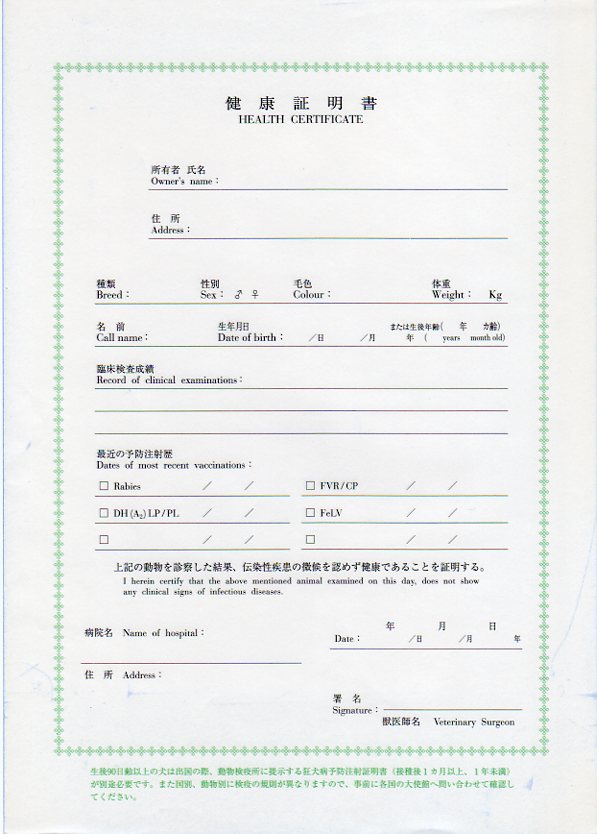 健康証明書
HEALTH CERTIFICATE
所有者 氏名
Owner's name：
住 所
Address：
種類 性別 毛色 体重
Breed： Sex： ♂ ♀ Colour： Weight： Kg
名 前 生年月日 または生後年齢( 年 カ齢)
Call name： Date of birth： /日 /月 年 ( years month old)
臨床検査成績
Record of clinical examinations：
最近の予防注射歴
Dates of most recent vaccinations：
□ Rabies / / □ FVR/CP / /
□ DH(A₂)LP/PL / / □ FeLV / /
□ / / □ / /
上記の動物を診察した結果、伝染性疾患の徴候を認めず健康であることを証明する。
I herein certify that the above mentioned animal examined on this day, does not show
any clinical signs of infectious diseases.
年 月 日
病院名 Name of hospital：
Date： /日 /月 年
住 所 Address：
署 名
Signature：
獣医師名 Veterinary Surgeon
生後90日齢以上の犬は出国の際、動物検疫所に提示する狂犬病予防注射証明書（接種後1カ月以上、1年未満）
が別途必要です。また国別、動物別に検疫の規則が異なりますので、事前に各国の大使館へ問い合わせて確認し
てください。